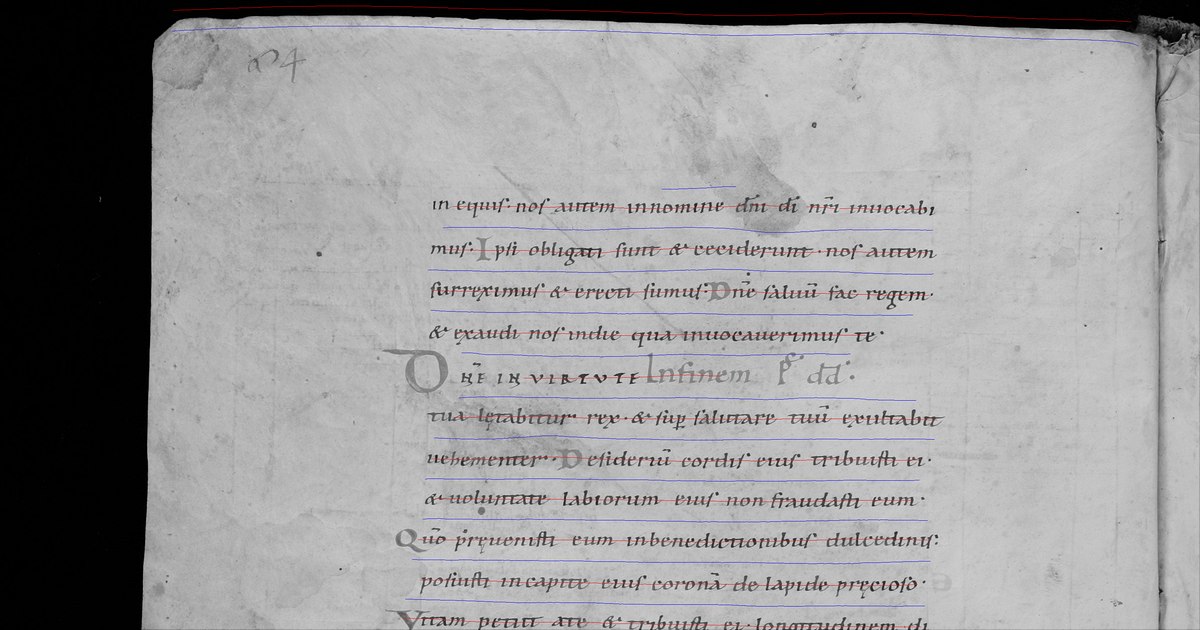 24
in equis· nos autem innomine dn̄i dī nr̄i inuocabi
mus· Ipsi obligati sunt & ceciderunt· nos autem
surreximus & erecti sumus· Dn̄e saluū fac regem·
& exaudi nos indie qua inuocauerimus te·
DN̄E IN VIRTVTE Infinem dd̄·
tua lętabitur rex· & sup̱ salutare tuū exultabit
uehementer· Desideriū cordis eius tribuisti ei·
& uoluntate labiorum eius non fraudasti eum·
Quō pręuenisti eum inbenedictionibus dulcedinis:
posuisti incapite eius coronā de lapide pręcioso·
Vitam petiit a te & tribuisti ei· longitudinem di